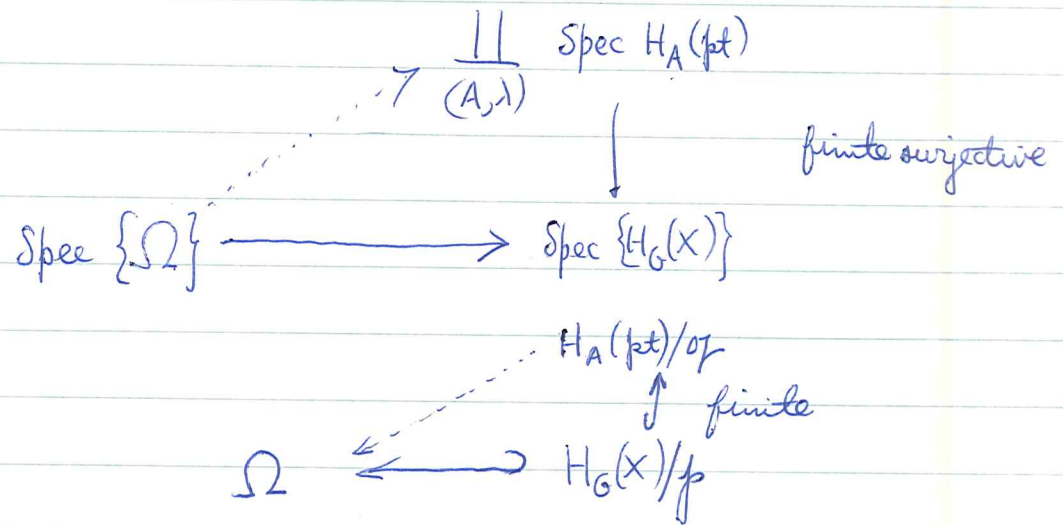 ∐ Spec H_A(pt)
(A,λ)
finite surjective
Spec {Ω} → Spec {H_G(X)}
H_A(pt)/𝔮
finite
Ω ← H_G(X)/𝔭